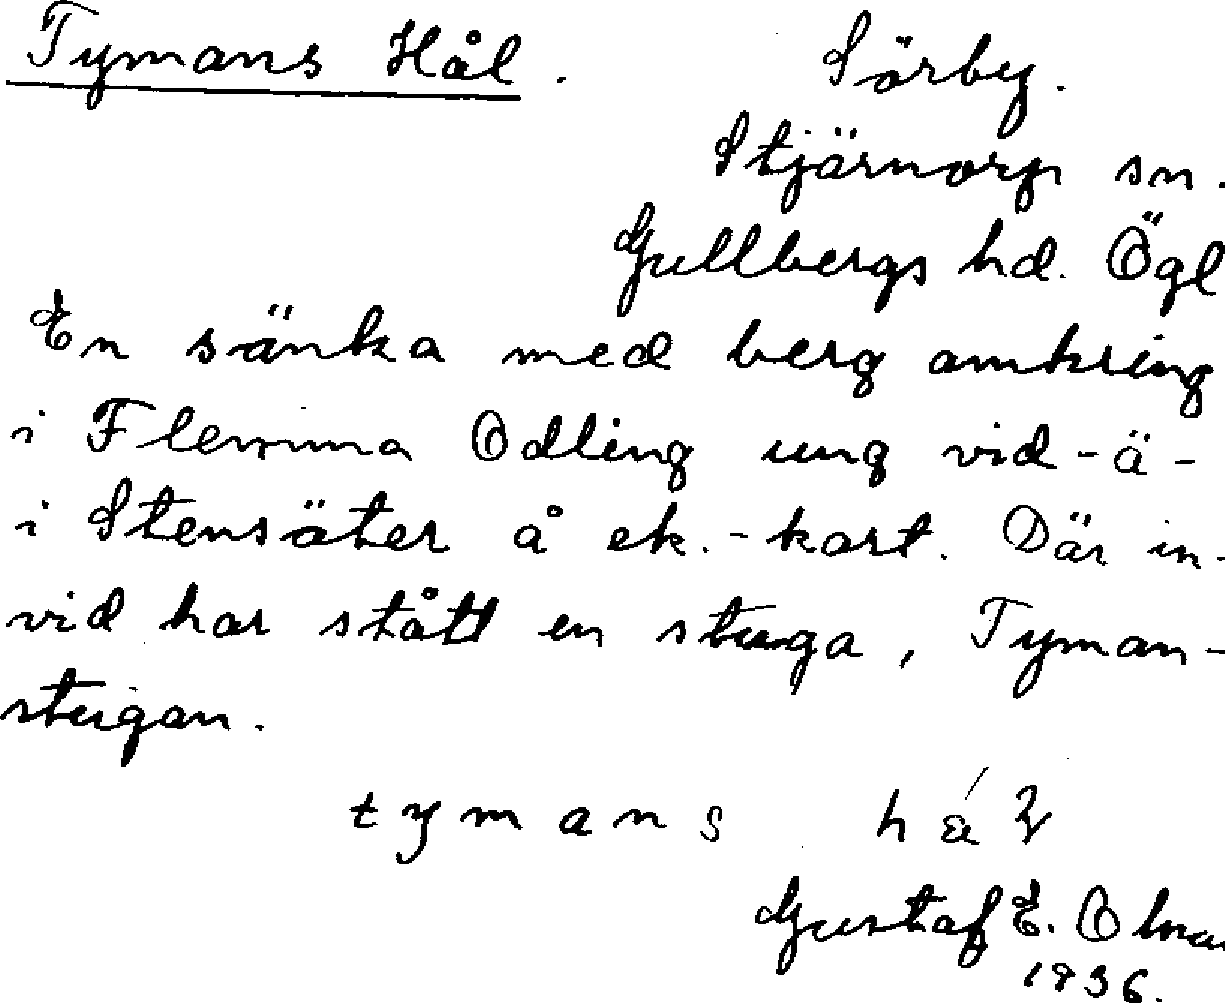 Tymans Hål. Sörby.
Stjärnorp sn.
Gullbergs hd. Ögl
En sänka med berg omkring
i Flemma Odling ung vid -ä-
i Stensäter å ek.-kart. Där in-
vid har stått en stuga, Tyman-
stugan.
tymans
Gustaf E.
1936.